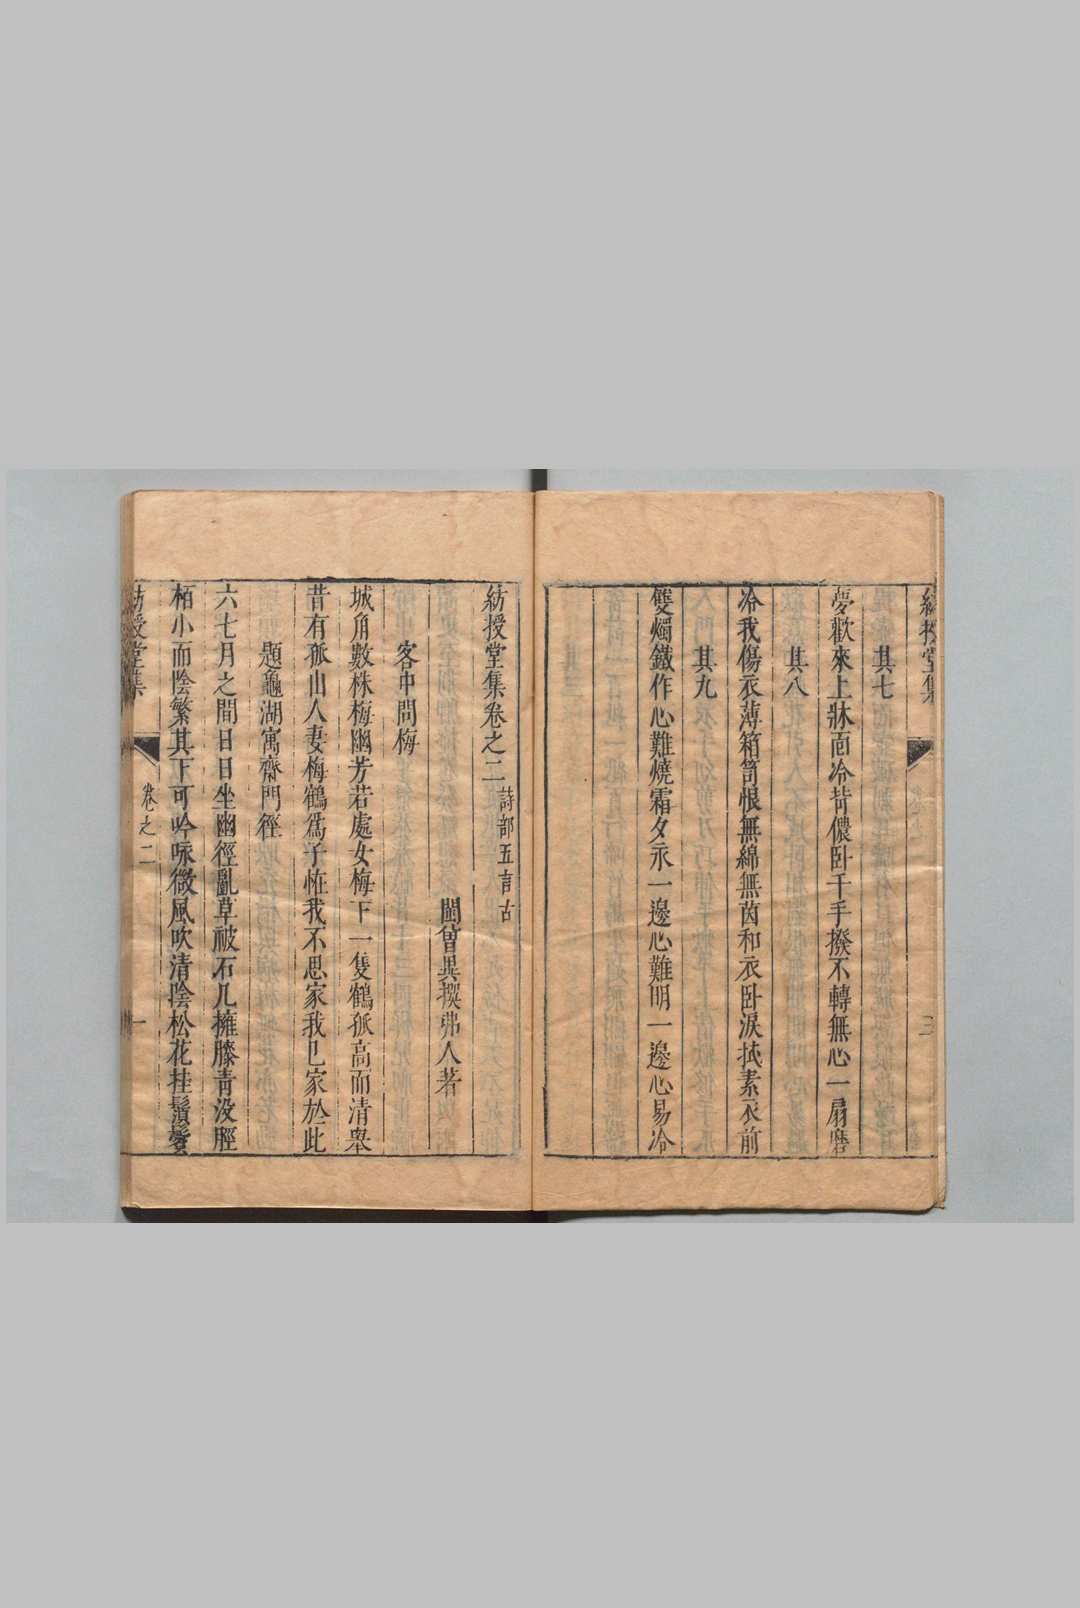 其七
夢歡來上牀面冷背儂卧千手撥不轉無心一扇磨
其八
冷我傷衣薄箱笥恨無綿無茵和衣卧淚拭素衣前
其九
雙燭鐵作心難燒霜夕永一邊心難明一邊心易冷
紡授堂集卷之二 詩部五言古
閩曾異撰弗人著
客中問梅
城角數株梅幽芳若處女梅下一隻鶴孤高而清舉
昔有孤山人妻梅鶴爲子恠我不思家我已家於此
題龜湖寓齋門徑
六七月之間日日坐幽徑亂草被石几擁膝靑没脛
栢小而陰繁其下可吟咏微風吹清陰松花挂鬚鬢
紡授堂集
卷之二
一